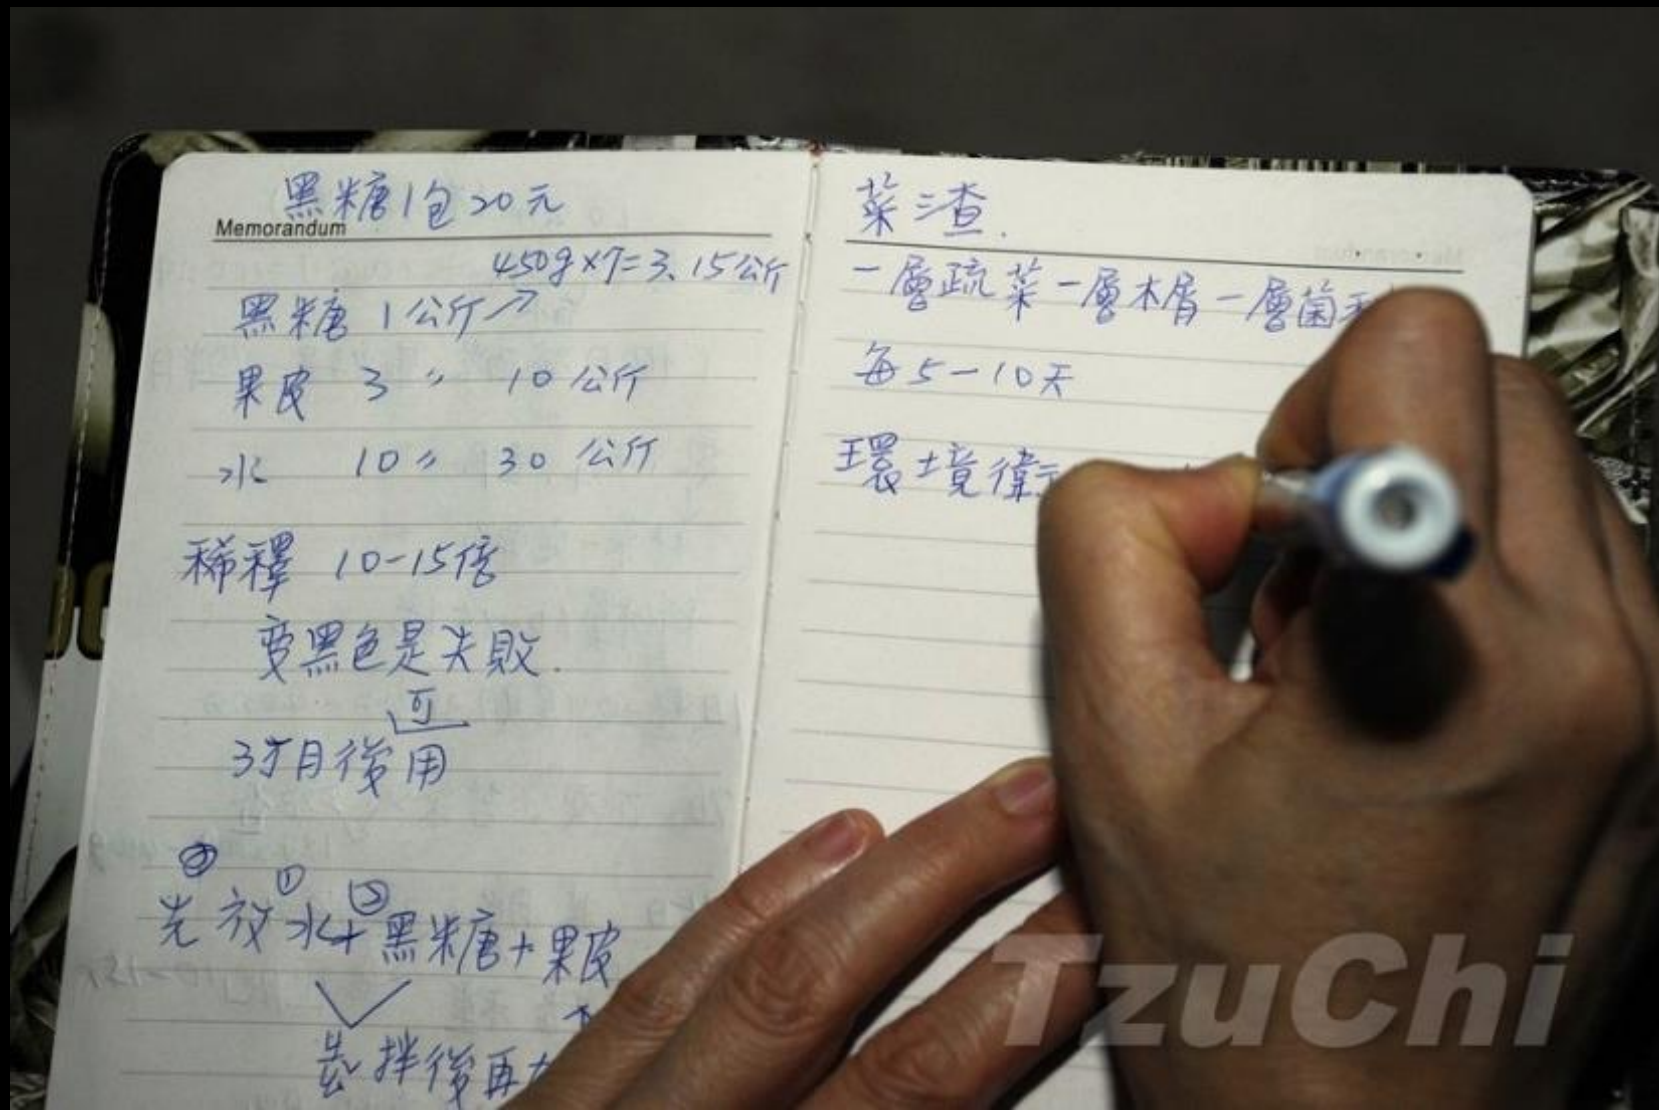 黑糖1包20元
Memorandum
450g×7=3.15公斤
黑糖 1公斤↗
果皮 3 〃 10公斤
水 10〃 30公斤
稀釋 10-15倍
變黑色是失敗.
可
3才月後用
① ②
先放水+黑糖+果皮
拌後再
菜渣.
一層蔬菜一層木屑一層菌
每5-10天
環境衛
TzuChi